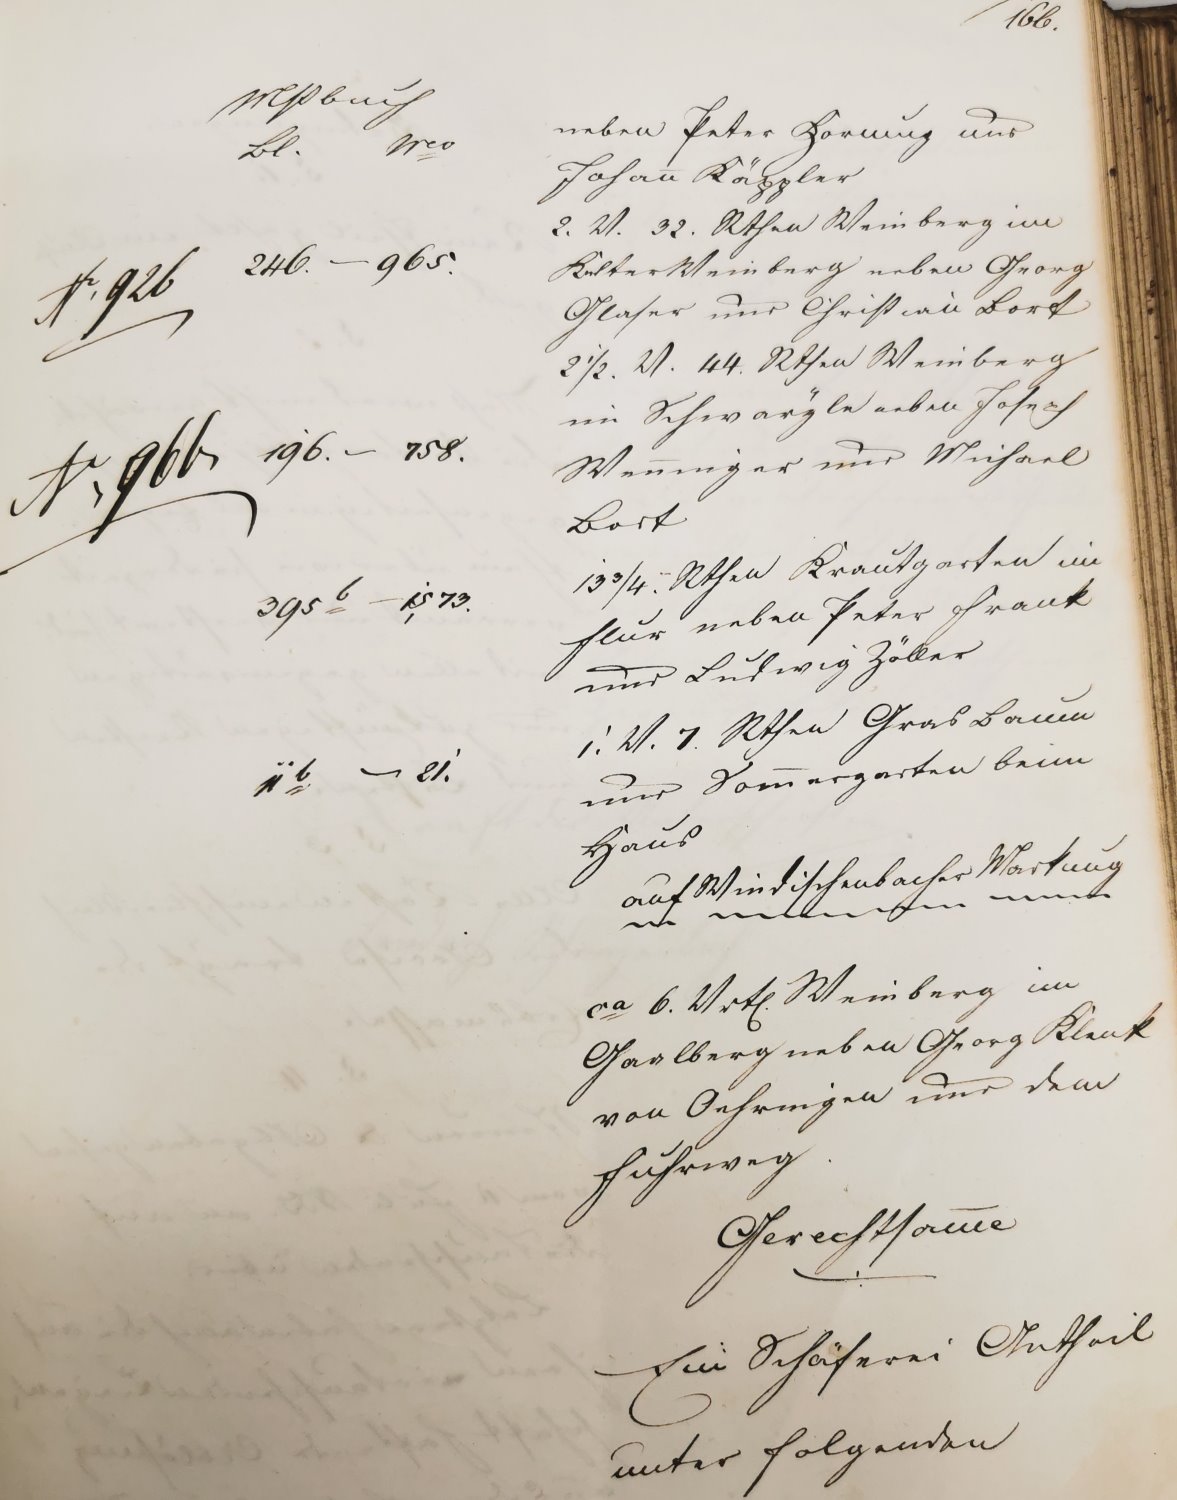 166.
Meßbuch
Bl. Nro
neben Peter Hornung und
Johann Käppler
2. V. 32. Rthen Weinberg im
Kelterweinberg neben Georg
Glaser und Christian Bort
No. 926 246. — 965.
2 1/2. V. 44. Rthen Weinberg
im Schwarzle neben Joseph
Wenninger und Michael
Bort
No. 966 196. — 758.
13 3/4. Rthen Krautgarten im
Flur neben Peter Frank
und Ludwig Zöller
395 b — 1573.
1. V. 7. Rthen Gras Baum
und Sommergarten beim
Haus
11 b — 21.
auf Windischenbacher Markung
ca 6. Vrtl. Weinberg im
Gaalberg neben Georg Klenk
von Oehringen und dem
Fuhrweg.
Gerechtsame
Ein Schäferei Antheil
unter folgenden